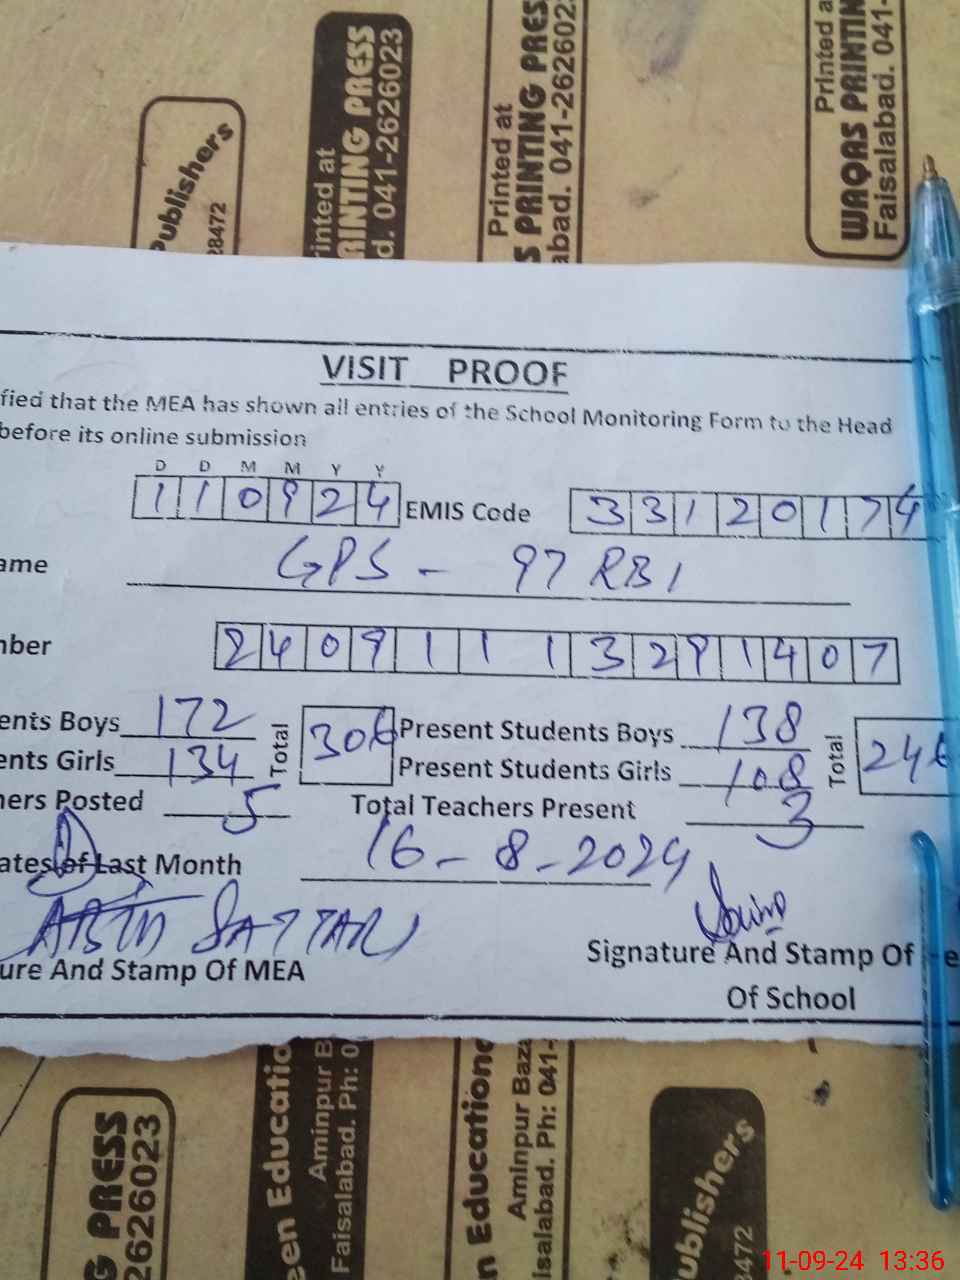 Publishers
28472
rinted at
RINTING PRESS
d. 041-2626023
Printed at
S PRINTING PRES
abad. 041-262602
Printed a
WAQAS PRINTIN
Faisalabad. 041-
VISIT PROOF
fied that the MEA has shown all entries of the School Monitoring Form to the Head
before its online submission
D D M M Y Y
110924 EMIS Code 33120174
ame GPS - 97 RB1
nber 24091113291407
ents Boys 172 Total 306 Present Students Boys 138 Total 246
ents Girls 134 Present Students Girls 108
hers Posted 5 Total Teachers Present 3
ates of Last Month 16-8-2024
ABID SATTAR
ure And Stamp Of MEA Signature And Stamp Of He
Of School
G PRESS
2626023
een Educatio
Aminpur B
Faisalabad. Ph: 0
n Educationa
Aminpur Baza
isalabad. Ph: 041-
ublishers
8472
11-09-24 13:36